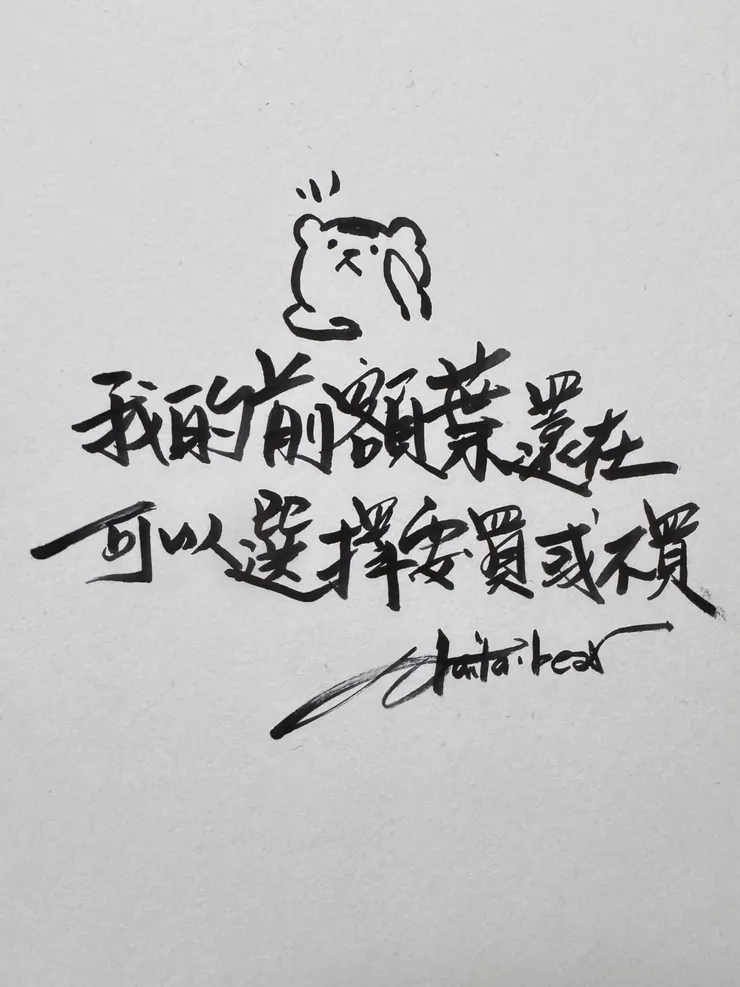 我的前額葉還在
可以選擇要買或不買
taitai.bear